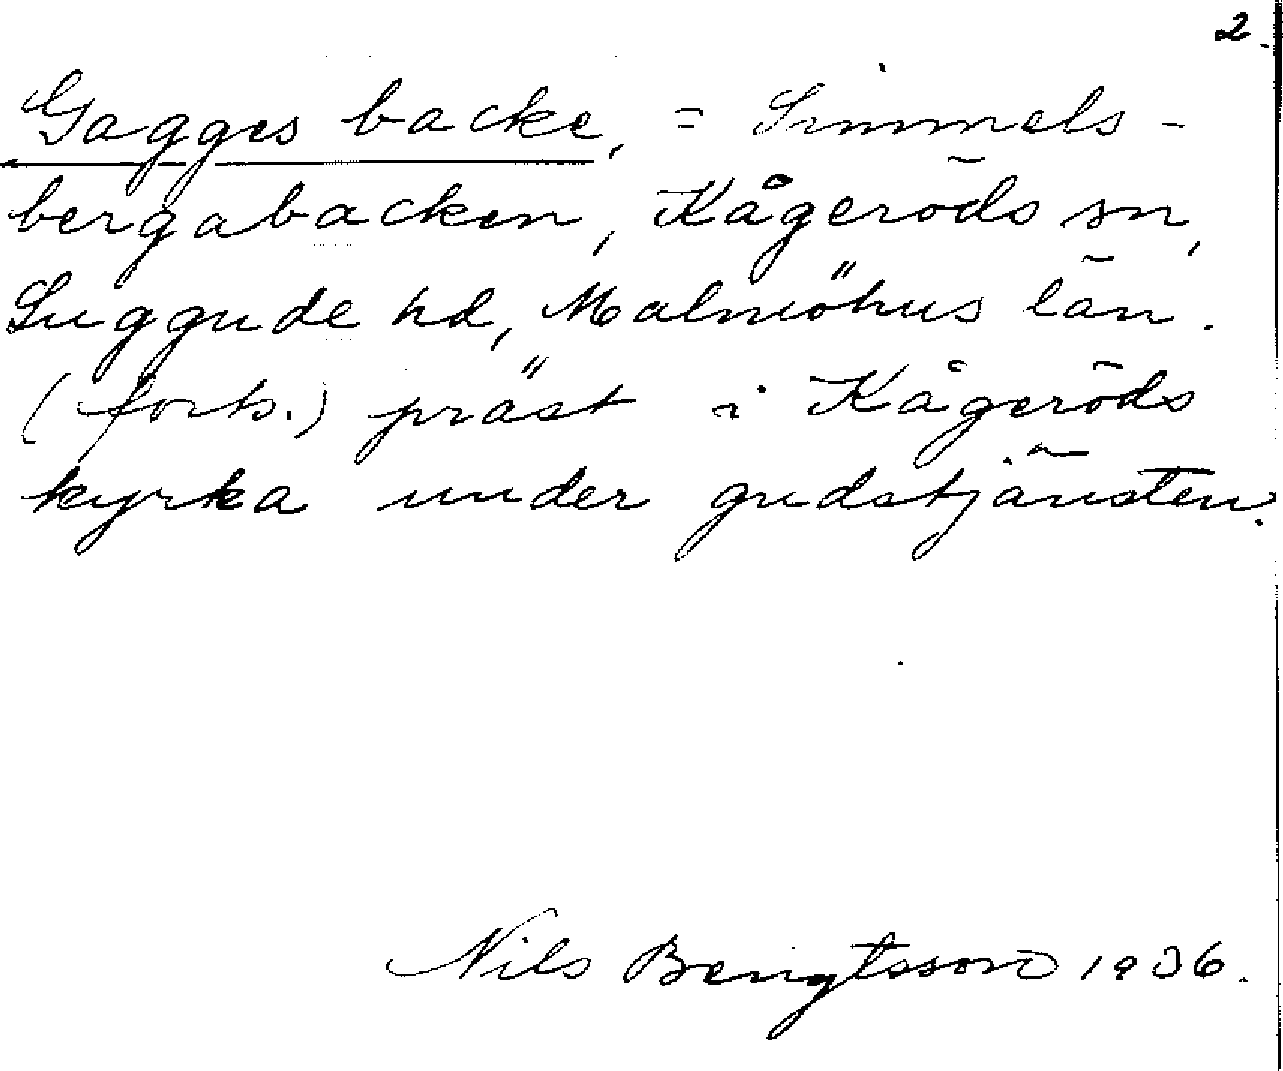 2.
Gagges backe, = Simmels-
bergabacken, Kågeröds sn,
Luggude hd, Malmöhus län.
(forts.) präst i Kågeröds
kyrka under gudstjänsten.
Nils Bengtsson 1936.